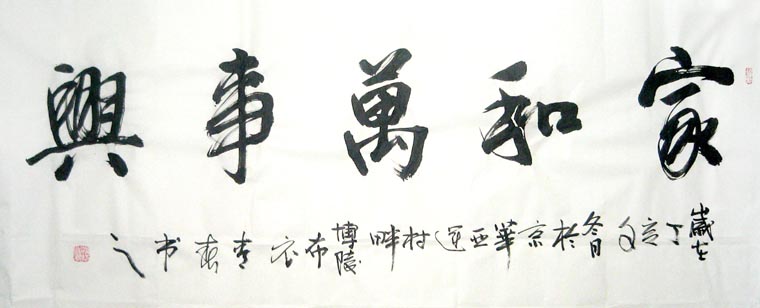 家和萬事興
歲在丁亥冬月於京華亚运村畔博陵布衣春书之